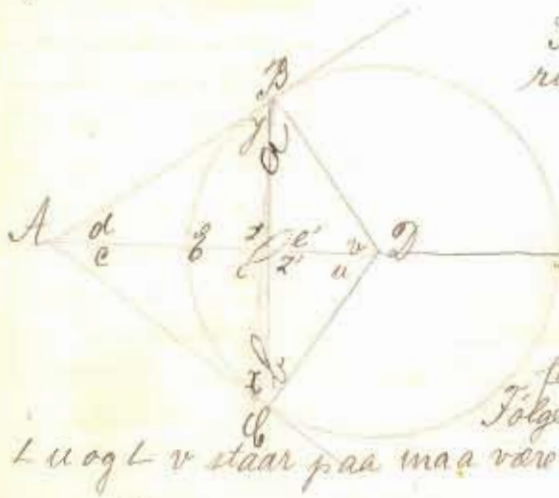 B
y
A
d
c
E
e'
z'
v
u
D
x
C
Følge
∟ u og ∟ v staar paa maa være